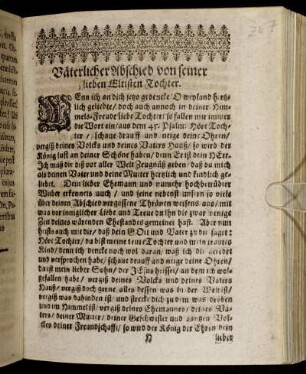 Väterlicher Abschied von seiner
lieben Eltisten Tochter.
WEnn ich an dich jetzo gedencke / O weyland hertz-
lich geliebte / doch auch annoch in deiner Him-
mels-Freude liebe Tochter! so fallen mir immer
die Wort ein / aus dem 45. Psalm: Höre Toch-
ter / schaue drauff und neige deine Ohren /
vergiß deines Volcks und deines Vaters Hauß / so wird der
König lust an deiner Schöne haben / denn Er ist dein HErr.
Ich muß dir diß vor aller Welt Zeugnüß geben / daß du mich
als deinen Vater und deine Mutter hertzlich und kindlich ge-
liebet. Dein lieber Ehemann und numehr hochbetrübter
Witber erkennets auch / und seine
über deinen Abschied vergossene Thränen weisens aus / mit
was vor innniglicher Liebe und Treue du ihn die zwar wenige
Zeit deines wärenden Ehestandes gemeinet hast. Aber nun
heists auch wie dir / daß dein GOtt und Vater zu dir saget:
Hör Tochter / da bist meine
Kind / denn ich dencke noch wol daran / was ich dir geredet
und versprochen habe / schaue drauff und neige deine Ohren /
da ist mein lieber Sohn / der JEsus heisset / an dem ich wol-
gefallen habe / vergiß deines Volcks und deines Vaters
Hauß / vergiß doch gerne alles dessen was in der Welt ist /
vergiß was dahinden ist / und strecke dich zu dem was droben
und im Himmel ist / vergiß deines Ehemannes / deines Va-
ters / deiner Mutter / deiner Geschwister und gantzen Vol-
ckes deiner Freundschafft / so wird der König der Ehren dein
lieber